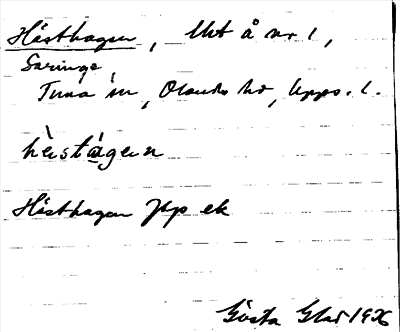 Hästhagen, Utt å nr 1,
Saringe
Tuna sn, Olands hd, Upps. l.
hèstágen
Hästhagen Jfp ek
Gösta 1926